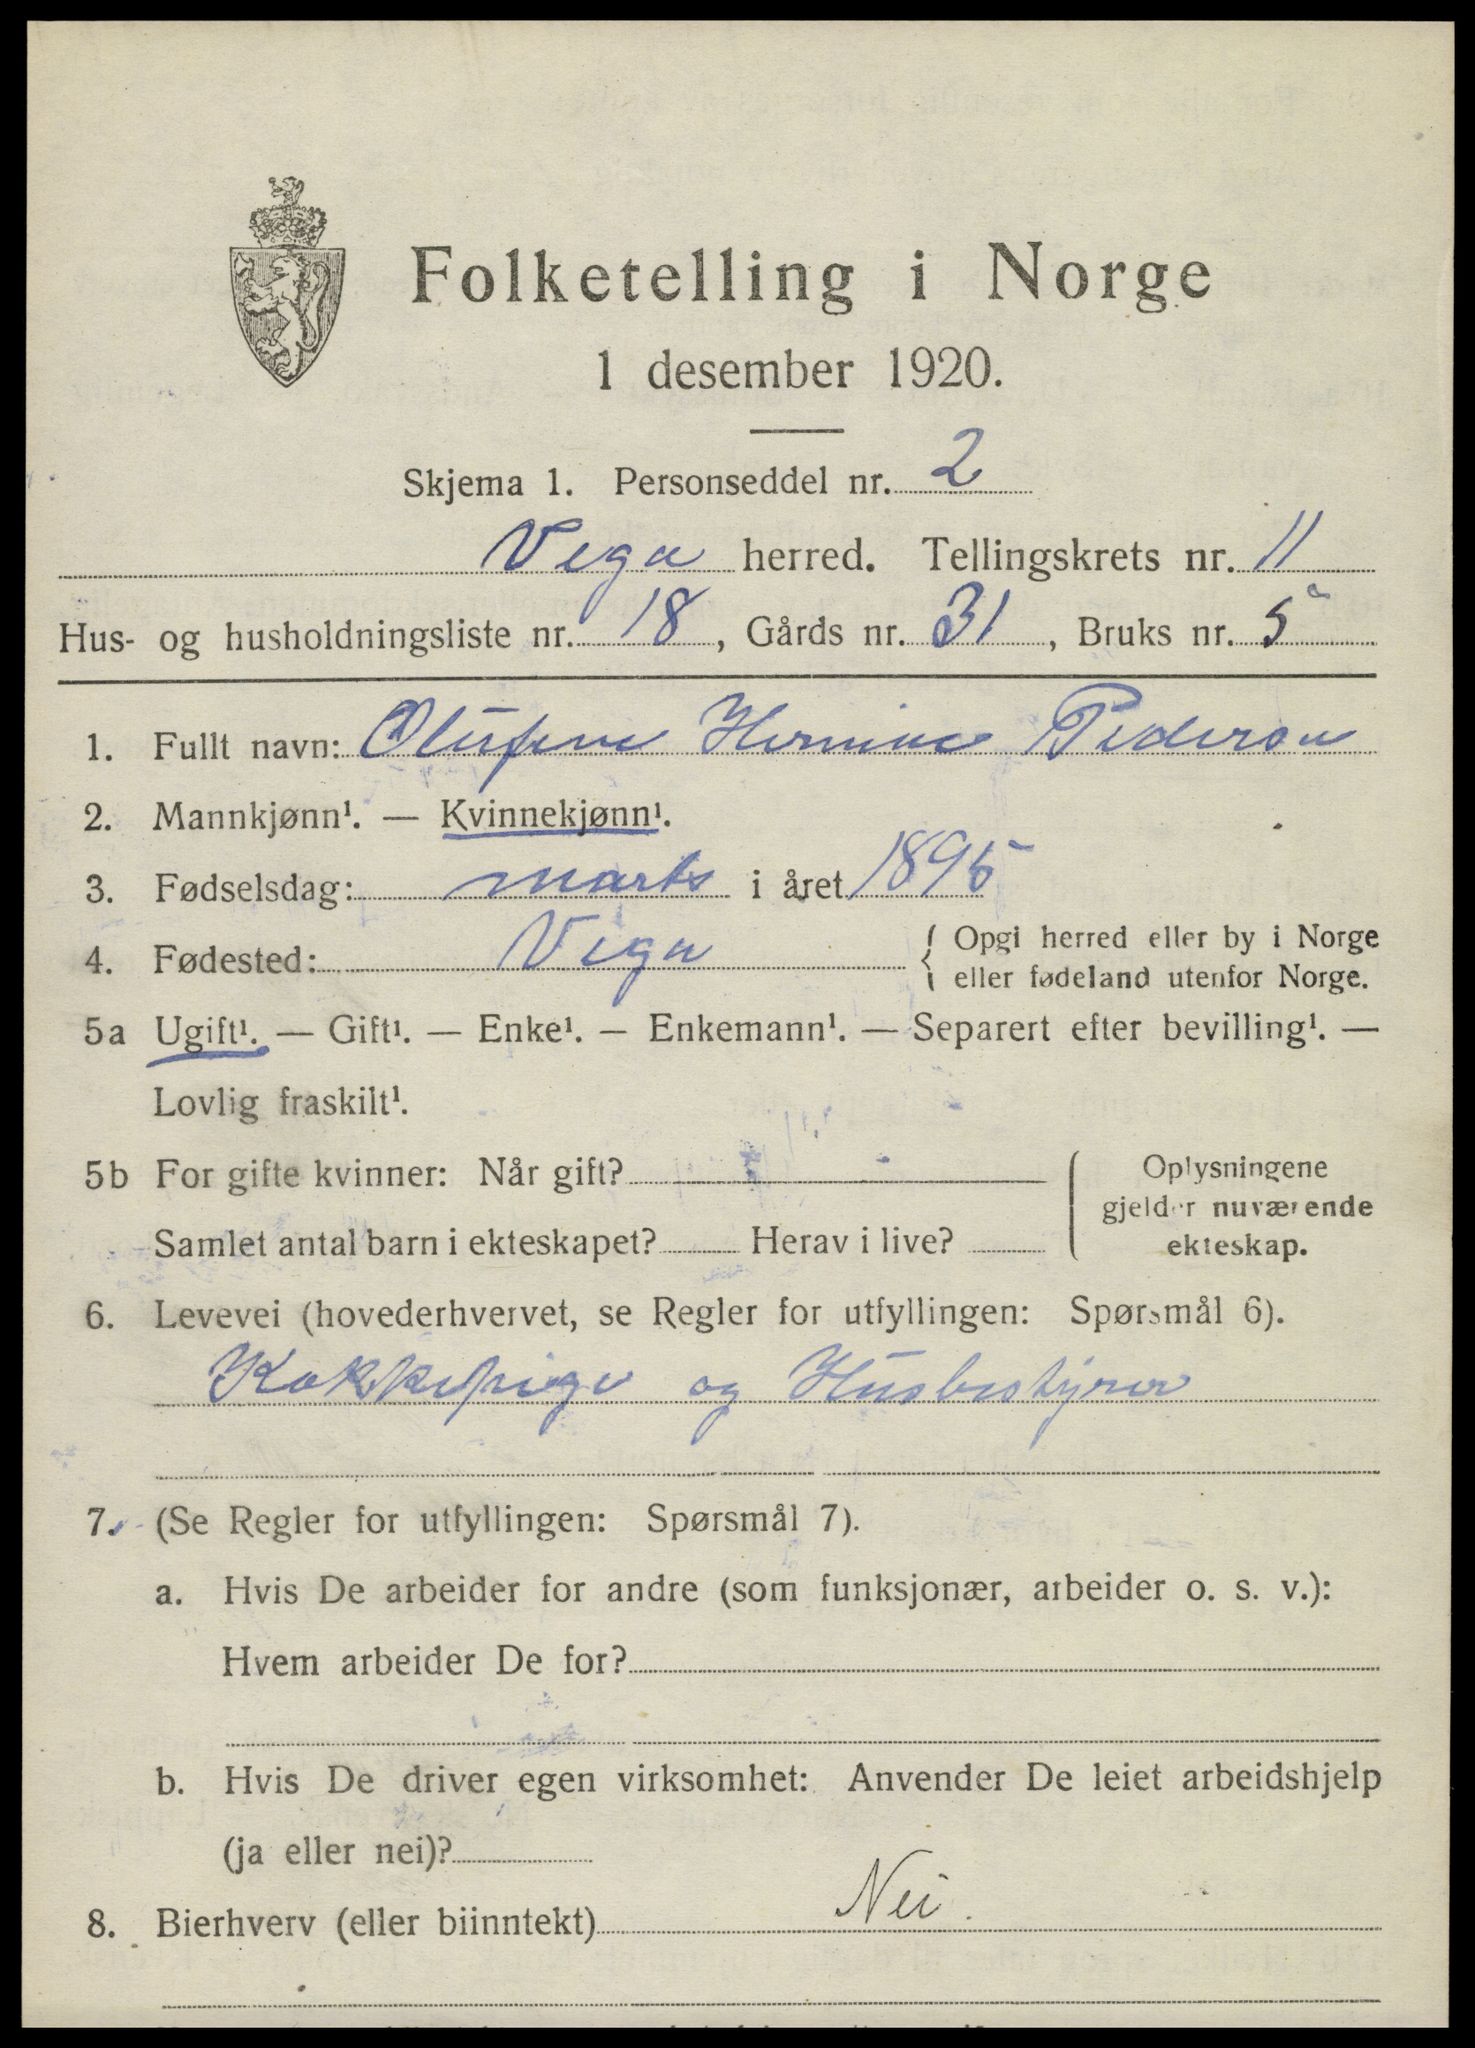 Folketelling i Norge
1 desember 1920.
Skjema 1. Personseddel nr. 2
Vega herred. Tellingskrets nr. 11
Hus- og husholdningsliste nr. 18, Gårds nr. 31, Bruks nr. 5
1. Fullt navn: Olufine Hermine Pederson
2. Mannkjønn¹. — Kvinnekjønn¹.
3. Fødselsdag: marts i året 1895
4. Fødested: Vega { Opgi herred eller by i Norge
eller fødeland utenfor Norge.
5a Ugift¹. — Gift¹. — Enke¹. — Enkemann¹. — Separert efter bevilling¹. —
Lovlig fraskilt¹.
5b For gifte kvinner: Når gift?
Samlet antal barn i ekteskapet? Herav i live?
Oplysningene
gjelder nuværende
ekteskap.
6. Levevei (hovederhvervet, se Regler for utfyllingen: Spørsmål 6).
Kokkepige og Husbestyrer
7. (Se Regler for utfyllingen: Spørsmål 7).
a. Hvis De arbeider for andre (som funksjonær, arbeider o. s. v.):
Hvem arbeider De for?
b. Hvis De driver egen virksomhet: Anvender De leiet arbeidshjelp
(ja eller nei)?
8. Bierhverv (eller biinntekt) Nei.